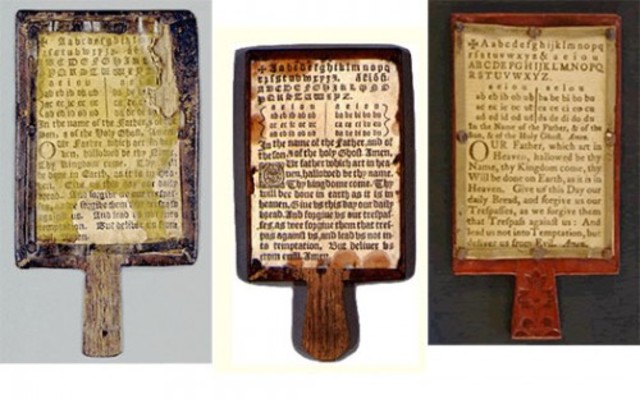 a e i o u
the name of the Father,
of the Holy Ghost. Amen.
Our Father which art in
hallowed be thy
kingdom
be done in earth, as it is in
Give us this day our daily
And forgive us our
forgive them that
us. And lead us not
temptation. But deliver us
✠Aabcdefghijklmnopq
rſstuvwxyz
ABCDEFGHIJKLMNOPQ
RSTUVWXYZ.
a e i o u a e i o u
ab eb ib ob ub ba be bi bo bu
ac ec ic oc uc ca ce ci co cu
ad ed id od ud da de di do du
In the name of the Father, and of
the Son, & of the holy Ghoſt. Amen.
OUr father which art in hea-
uen, hallowed be thy name.
Thy kingdome come. Thy
will bee done in earth as it is in
heauen. Giue us this day our daily
bread. And forgiue us our treſpaſ-
ſes, as wee forgiue them that treſ-
pas againſt us: and lead us not in-
to temptation, But deliver us
from euill. Amen.
✠Aabcdefghijklmnopq
rſstuvwxyz& a e i o u
ABCDEFGHIJKLMNOPQ
RSTUVWXYZ.
a e i o u a e i o u
ab eb ib ob ub ba be bi bo bu
ac ec ic oc uc ca ce ci co cu
ad ed id od ud da de di do du
In the Name of the Father, & of the
Son, & of the Holy Ghoſt. Amen.
OUR Father, which art in
Heaven, hallowed be thy
Name, thy Kingdom come, thy
Will be done on Earth, as it is in
Heaven. Give us this Day our
daily Bread, and forgive us our
Treſpaſſes, as we forgive them
that Treſpaſs againſt us: And
lead us not into Temptation, but
deliver us from Evil. Amen.